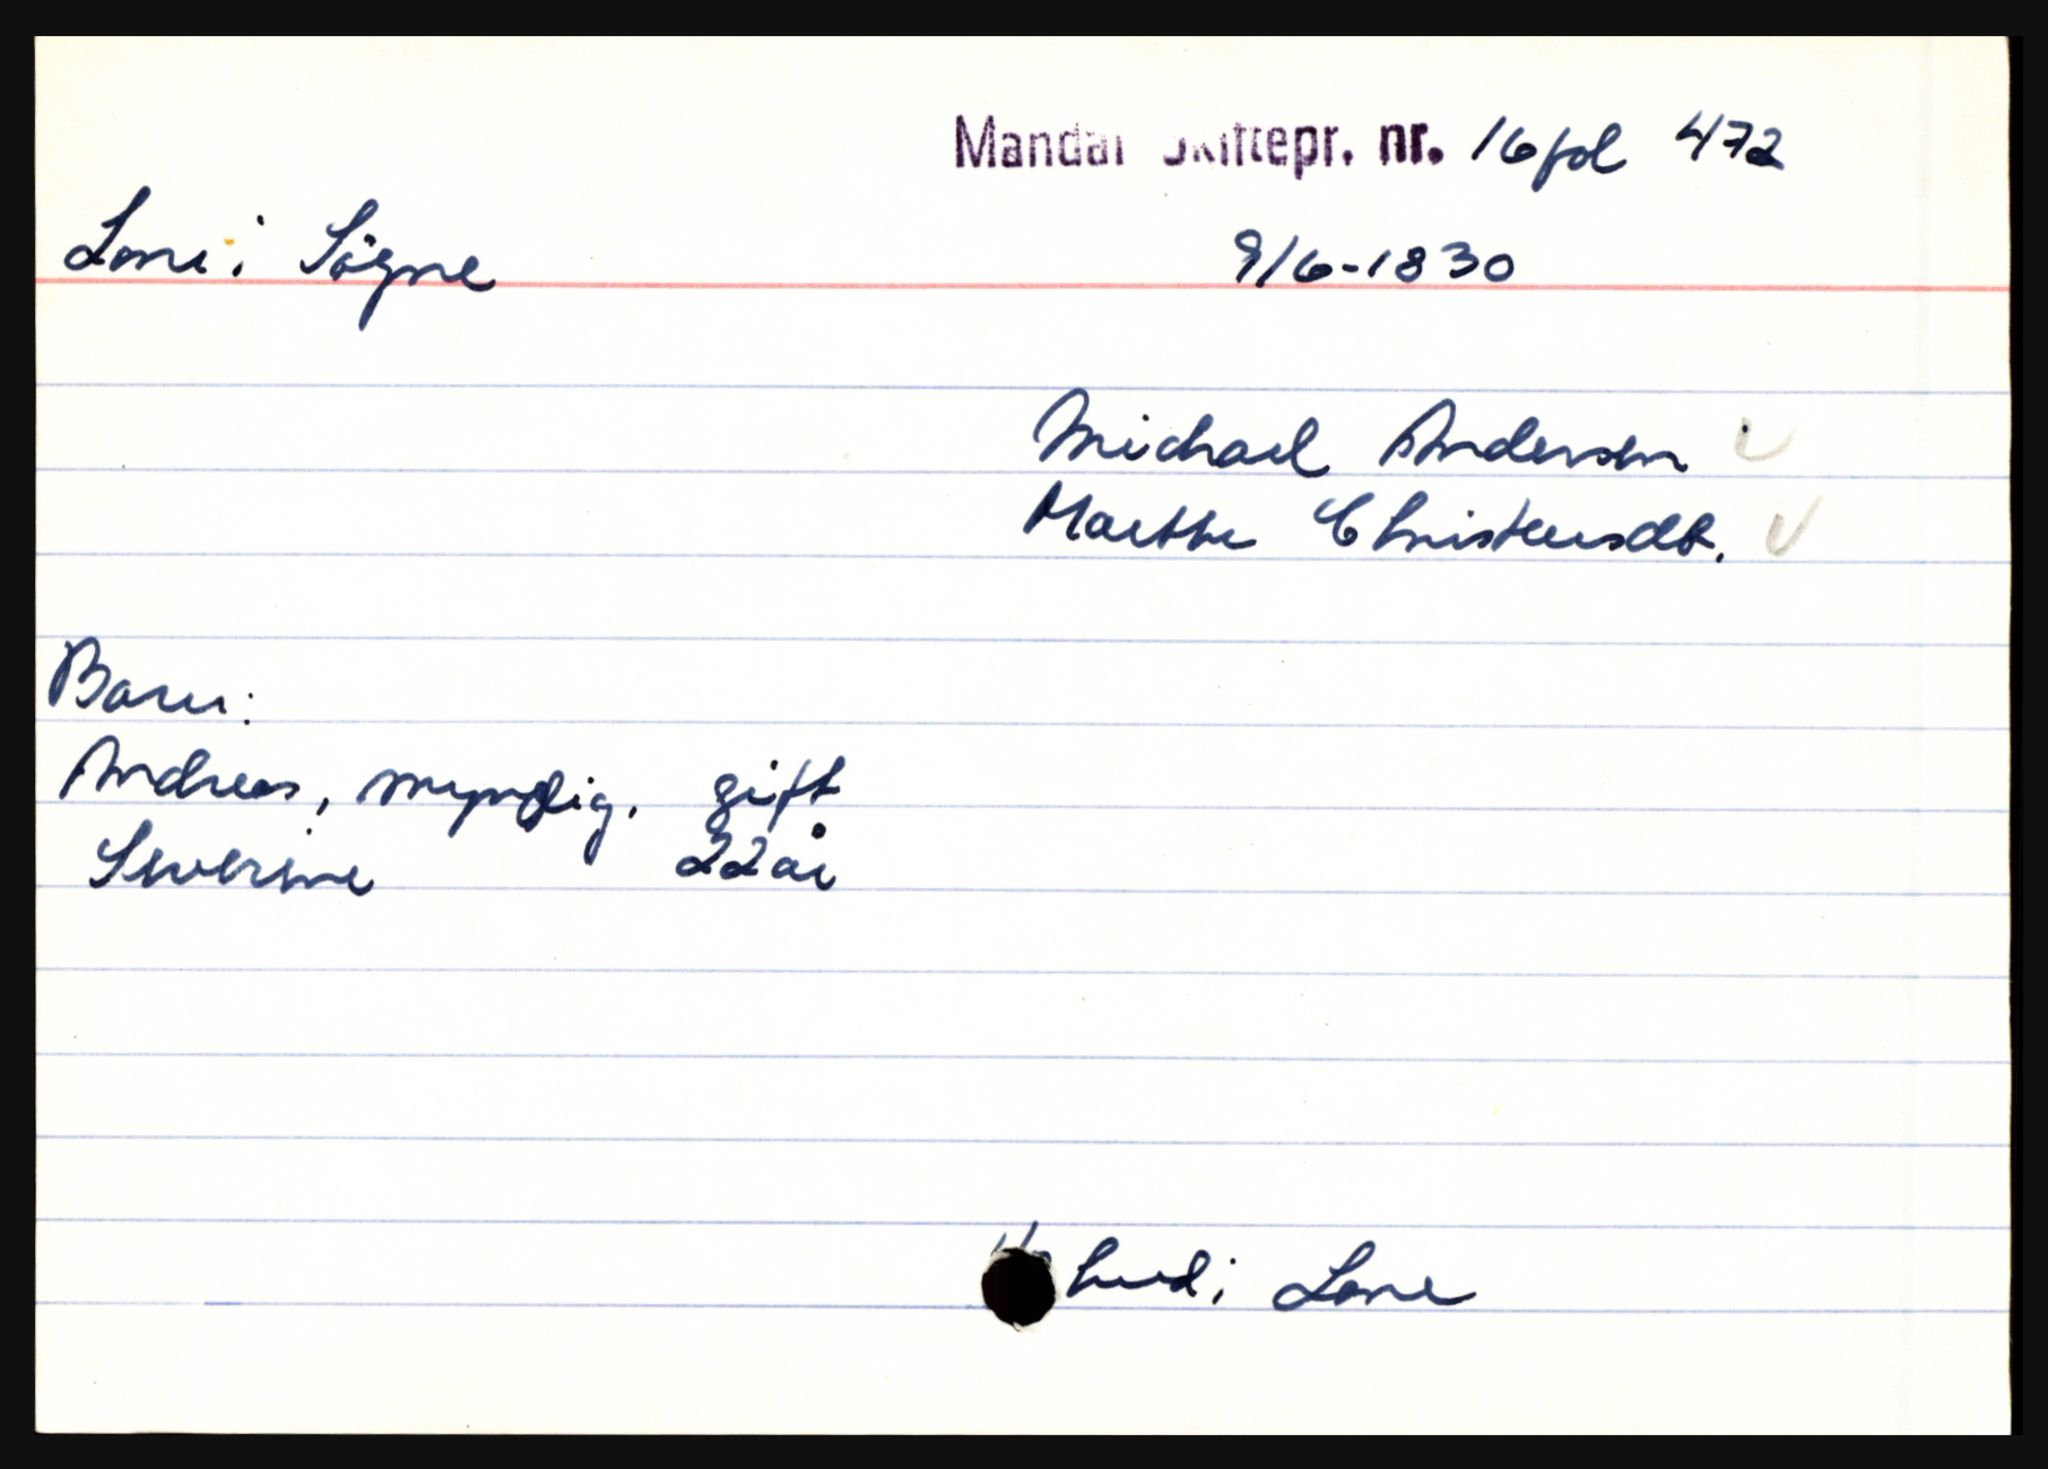 Mandal Skiftepr. nr. 16 fol 472
Lone i Søgne 9/6-1830
Michael Andersen
Marthe Christensdt.
Barn:
Andreas, myndig, gift
Severine 22 år
hud i Lone